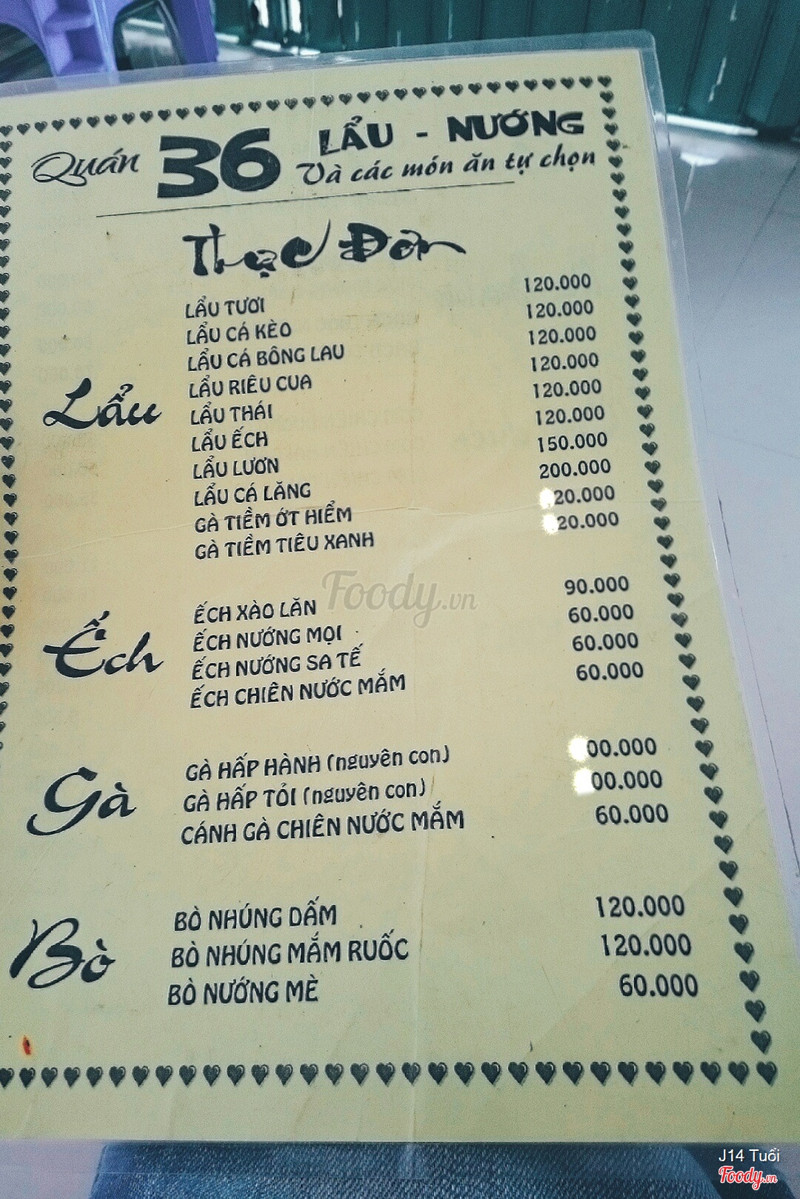 Quán 36 LẨU - NƯỚNG
Và các món ăn tự chọn
Thực Đơn
Lẩu
LẨU TƯƠI 120.000
LẨU CÁ KÈO 120.000
LẨU CÁ BÔNG LAU 120.000
LẨU RIÊU CUA 120.000
LẨU THÁI 120.000
LẨU ẾCH 120.000
LẨU LƯƠN 150.000
LẨU CÁ LĂNG 200.000
GÀ TIỀM ỚT HIỂM 20.000
GÀ TIỀM TIÊU XANH 20.000
Foody.vn
Ếch
ẾCH XÀO LĂN 90.000
ẾCH NƯỚNG MỌI 60.000
ẾCH NƯỚNG SA TẾ 60.000
ẾCH CHIÊN NƯỚC MẮM 60.000
Gà
GÀ HẤP HÀNH (nguyên con) 00.000
GÀ HẤP TỎI (nguyên con) 00.000
CÁNH GÀ CHIÊN NƯỚC MẮM 60.000
Bò
BÒ NHÚNG DẤM 120.000
BÒ NHÚNG MẮM RUỐC 120.000
BÒ NƯỚNG MÈ 60.000
J14 Tuổi
Foody.vn